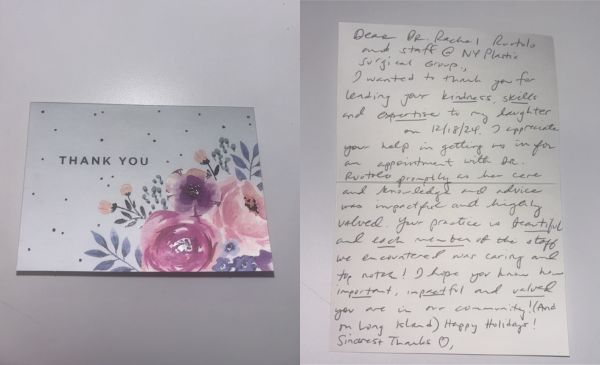 THANK YOU
Dear Dr. Rachel Ruotolo
and staff @ NY Plastic
Surgical Group,
I wanted to thank you for
lending your kindness, skills
and expertise to my daughter
on 12/18/24. I appreciate
your help in getting us in for
an appointment with Dr.
Ruotolo promptly as her care
and knowledge and advice
was impactful and highly
valued. Your practice is beautiful
and each member of the staff
we encountered was caring and
top notch! I hope you know how
important, impactful and valued
you are in our community! (And
on Long Island) Happy Holidays!
Sincerest Thanks ♡,